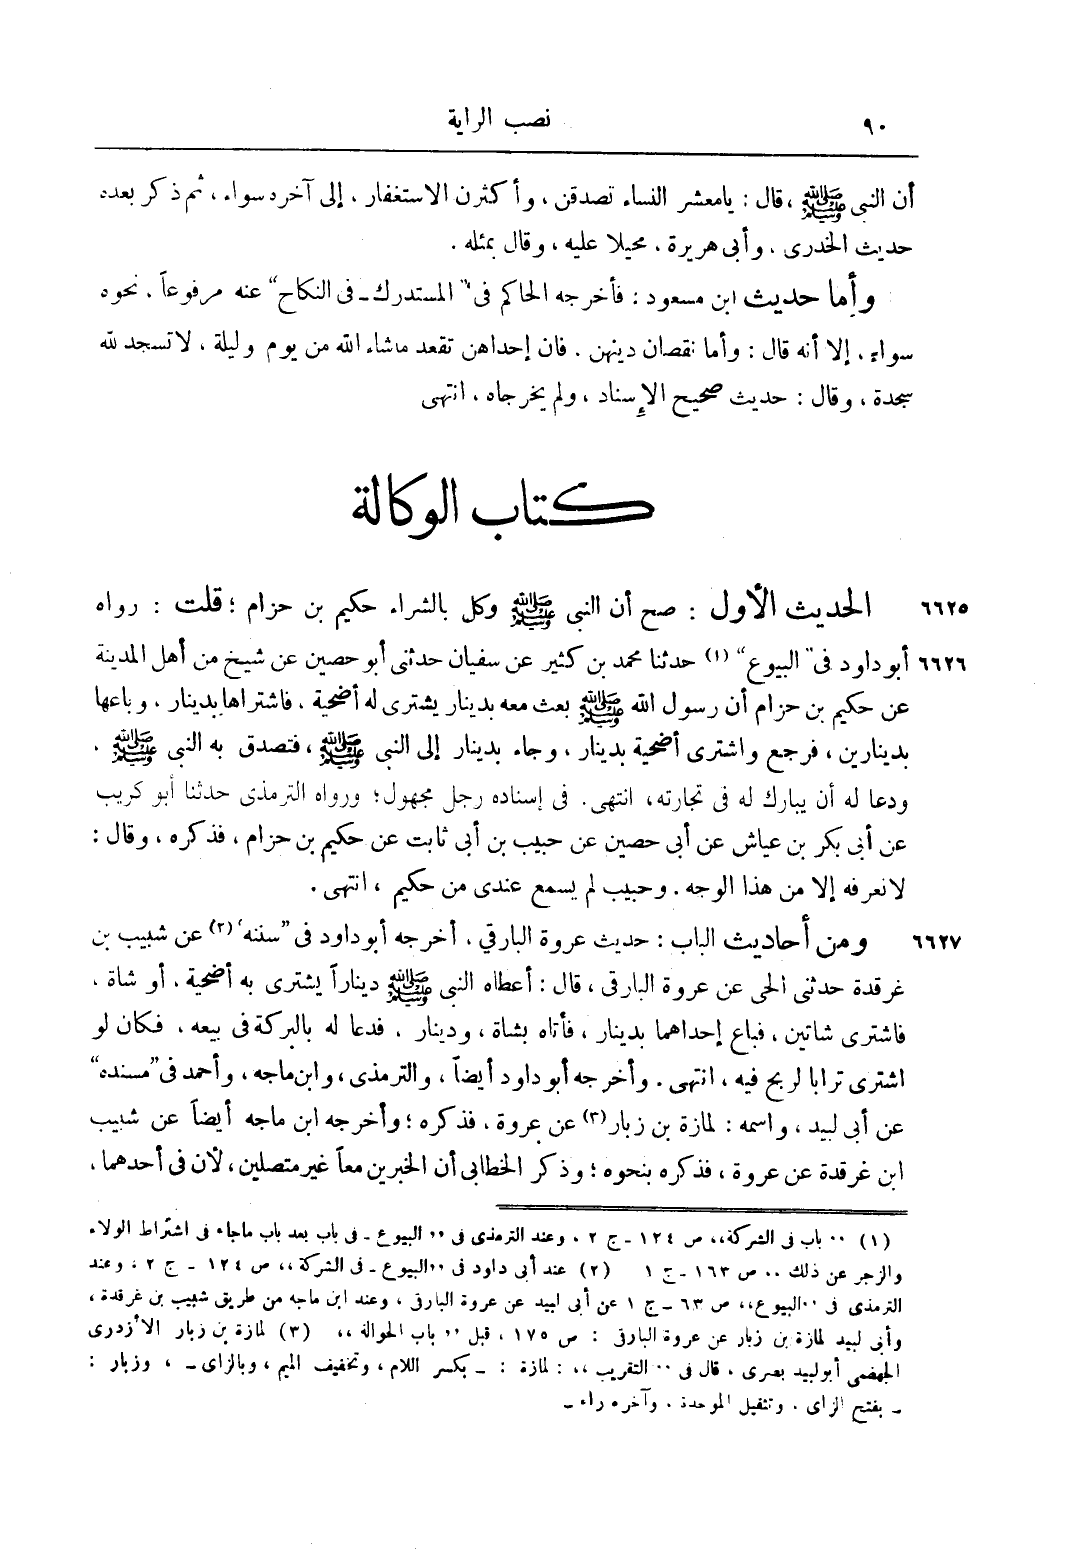 ٩٠ نصب الراية
أن النبى ﷺ ، قال : يامعشر النساء تصدقن ، وأكثرن الاستغفار ، إلى آخره سواء ، ثم ذكر بعده
حديث الخدرى ، وأبى هريرة ، محيلا عليه ، وقال بمثله .
وأما حديث ابن مسعود : فأخرجه الحاكم فى "المستدرك ـ فى النكاح" عنه مرفوعاً ، نحوه
سواء ، إلا أنه قال : وأما نقصان دينهن ، فان إحداهن تقعد ماشاء الله من يوم وليلة ، لا تسجد لله
سجدة ، وقال : حديث صحيح الإسناد ، ولم يخرجاه ، انتهى
كتاب الوكالة
٦٦٢٥ الحديث الأول : صح أن النبى ﷺ وكل بالشراء حكيم بن حزام ؛ قلت : رواه
٦٦٢٦ أبو داود فى "البيوع" (١) حدثنا محمد بن كثير عن سفيان حدثنى أبو حصين عن شيخ من أهل المدينة
عن حكيم بن حزام أن رسول الله ﷺ بعث معه بدينار يشترى له أضحية ، فاشتراها بدينار ، وباعها
بدينارين ، فرجع واشترى أضحية بدينار ، وجاء بدينار إلى النبى ﷺ ، فتصدق به النبى ﷺ ،
ودعا له أن يبارك له فى تجارته، انتهى. فى إسناده رجل مجهول؛ ورواه الترمذى حدثنا أبو كريب
عن أبى بكر بن عياش عن أبى حصين عن حبيب بن أبى ثابت عن حكيم بن حزام ، فذكره ، وقال :
لا نعرفه إلا من هذا الوجه . وحبيب لم يسمع عندى من حكيم ، انتهى .
٦٦٢٧ ومن أحاديث الباب : حديث عروة البارقي ، أخرجه أبو داود فى "سننه" (٢) عن شبيب بن
غرقدة حدثنى الحى عن عروة البارقى ، قال : أعطاه النبى ﷺ ديناراً يشترى به أضحية ، أو شاة ،
فاشترى شاتين ، فباع إحداهما بدينار ، فأتاه بشاة ، ودينار ، فدعا له بالبركة فى بيعه ، فكان لو
اشترى ترابا لربح فيه ، انتهى . وأخرجه أبو داود أيضاً ، والترمذى ، وابن ماجه ، وأحمد فى "مسنده"
عن أبى لبيد ، واسمه : لمازة بن زبار (٣) عن عروة ، فذكره ؛ وأخرجه ابن ماجه أيضاً عن شبيب
ابن غرقدة عن عروة ، فذكره بنحوه ؛ وذكر الخطابى أن الخبرين معاً غير متصلين ، لأن فى أحدهما ،
(١) ،، باب فى الشركة،، ص ١٢٤ ـ ج ٢ ، وعند الترمذى فى ،، البيوع ـ فى باب بعد باب ماجاء فى اشتراط الولاء
والزجر عن ذلك ،، ص ١٦٣ ـ ج ١ (٢) عند أبى داود فى ،،البيوع ـ فى الشركة ،، ص ١٢٤ ـ ج ٢ ، وعند
الترمذى فى ،،البيوع،، ص ٦٣ ـ ج ١ عن أبى لبيد عن عروة البارقى ، وعند ابن ماجه من طريق شبيب بن غرقدة ،
وأبى لبيد لمازة بن زبار عن عروة البارقى : ص ١٧٥ ، قبل ،، باب الحوالة ،، (٣) لمازة بن زبار الأزدرى
الجهضمى أبو لبيد بصرى ، قال فى ،، التقريب ،، : لمازة : ـ بكسر اللام ، وتخفيف الميم ، وبالزاى ـ ، وزبار :
ـ بفتح الزاى ، وتثقيل الموحدة ، وآخره راء ـ